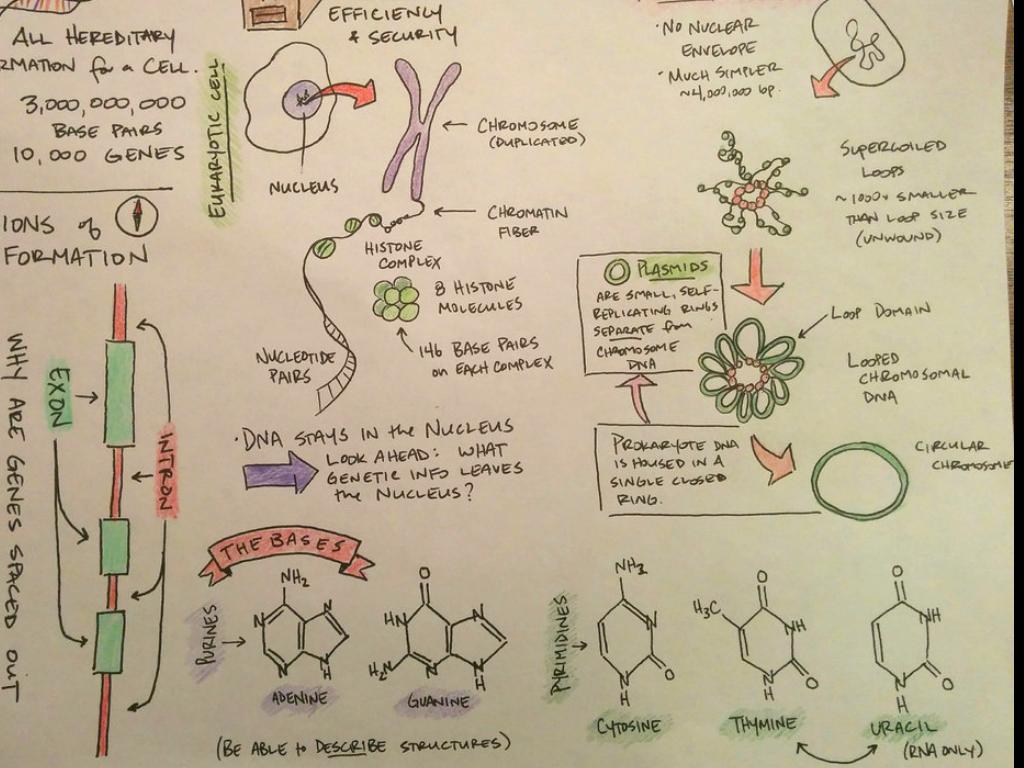 ALL HEREDITARY
RMATION for a CELL.
3,000,000,000
BASE PAIRS
10,000 GENES
IONS of
FORMATION
WHY ARE GENES SPACED OUT
EXON
INTRON
EFFICIENCY
& SECURITY
EUKARYOTIC CELL
NUCLEUS
CHROMOSOME
(DUPLICATED)
CHROMATIN
FIBER
HISTONE
COMPLEX
8 HISTONE
MOLECULES
146 BASE PAIRS
on EACH COMPLEX
NUCLEOTIDE
PAIRS
• DNA STAYS IN the NUCLEUS
LOOK AHEAD: WHAT
GENETIC INFO LEAVES
the NUCLEUS?
• NO NUCLEAR
ENVELOPE
• MUCH SIMPLER
~4,000,000 bp.
SUPERCOILED
LOOPS
~1000x SMALLER
THAN LOOP SIZE
(UNWOUND)
PLASMIDS
ARE SMALL, SELF-
REPLICATING RINGS
SEPARATE from
CHROMOSOME
DNA
LOOP DOMAIN
LOOPED
CHROMOSOMAL
DNA
PROKARYOTE DNA
IS HOUSED IN A
SINGLE CLOSED
RING.
CIRCULAR
CHROMOSOME
THE BASES
PURINES
NH2
N
N
N
N
N
H
ADENINE
O
HN
N
H2N
N
N
H
GUANINE
PYRIMIDINES
NH2
N
N
O
H
CYTOSINE
O
H3C
NH
N
O
H
THYMINE
O
NH
N
O
H
URACIL
(RNA ONLY)
(BE ABLE to DESCRIBE STRUCTURES)